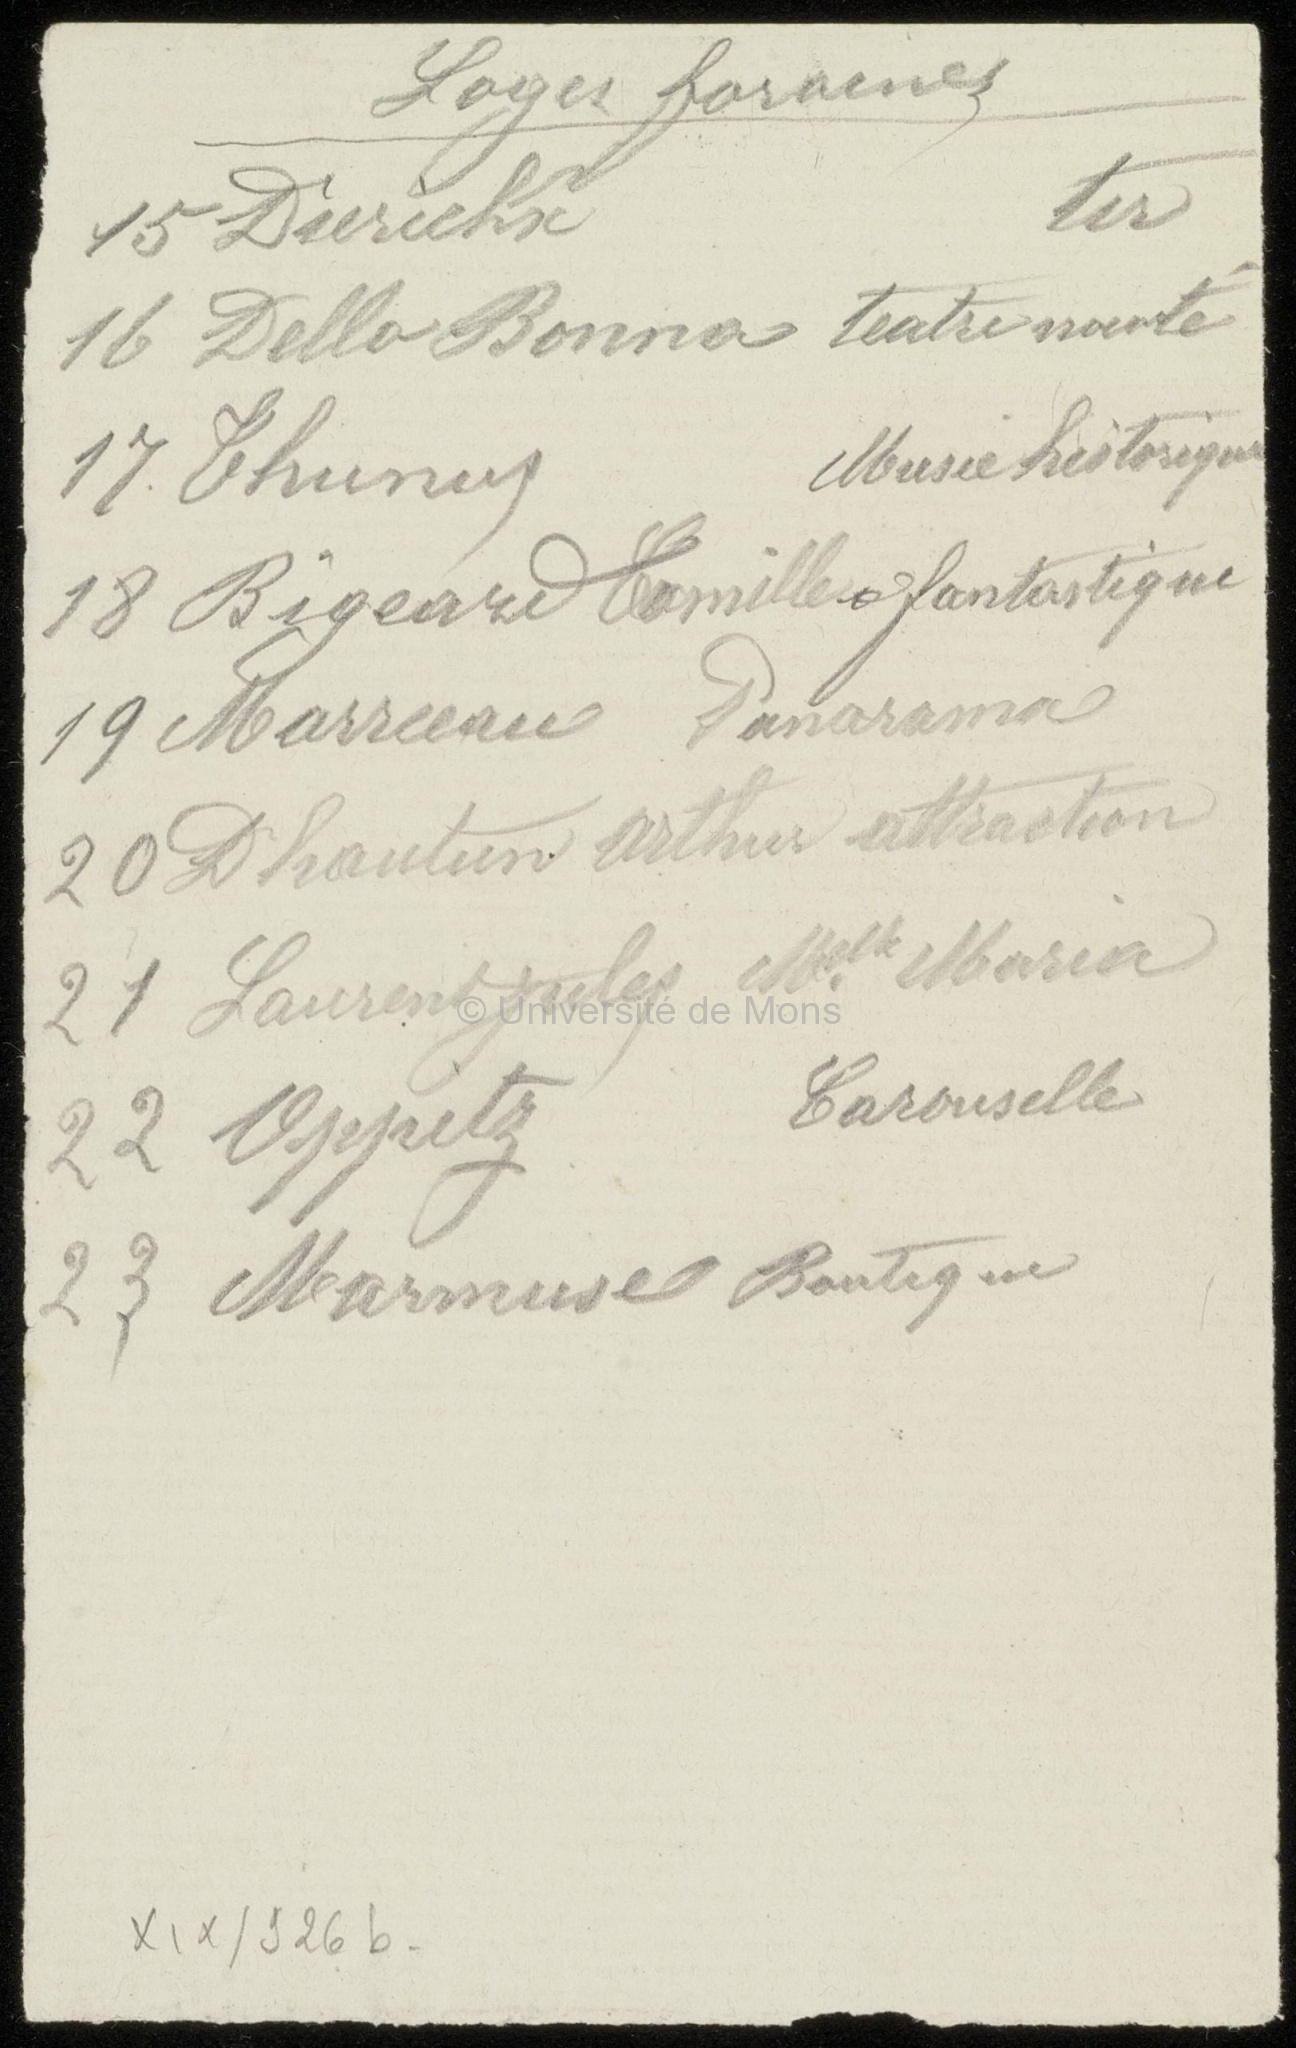 Loges foraines
15 Dierickx tir
16 Della Bonna teatre
17. Thunus Musée historique
18 Bigeard Camille fantastique
19 Marreeau Panorama
20 Dhautun. Arthur attraction
21 Laurent jules Melle Maria
© Université de Mons
22 Oppitz Carouselle
23 Marmuse Boutique
XIX/326 b.